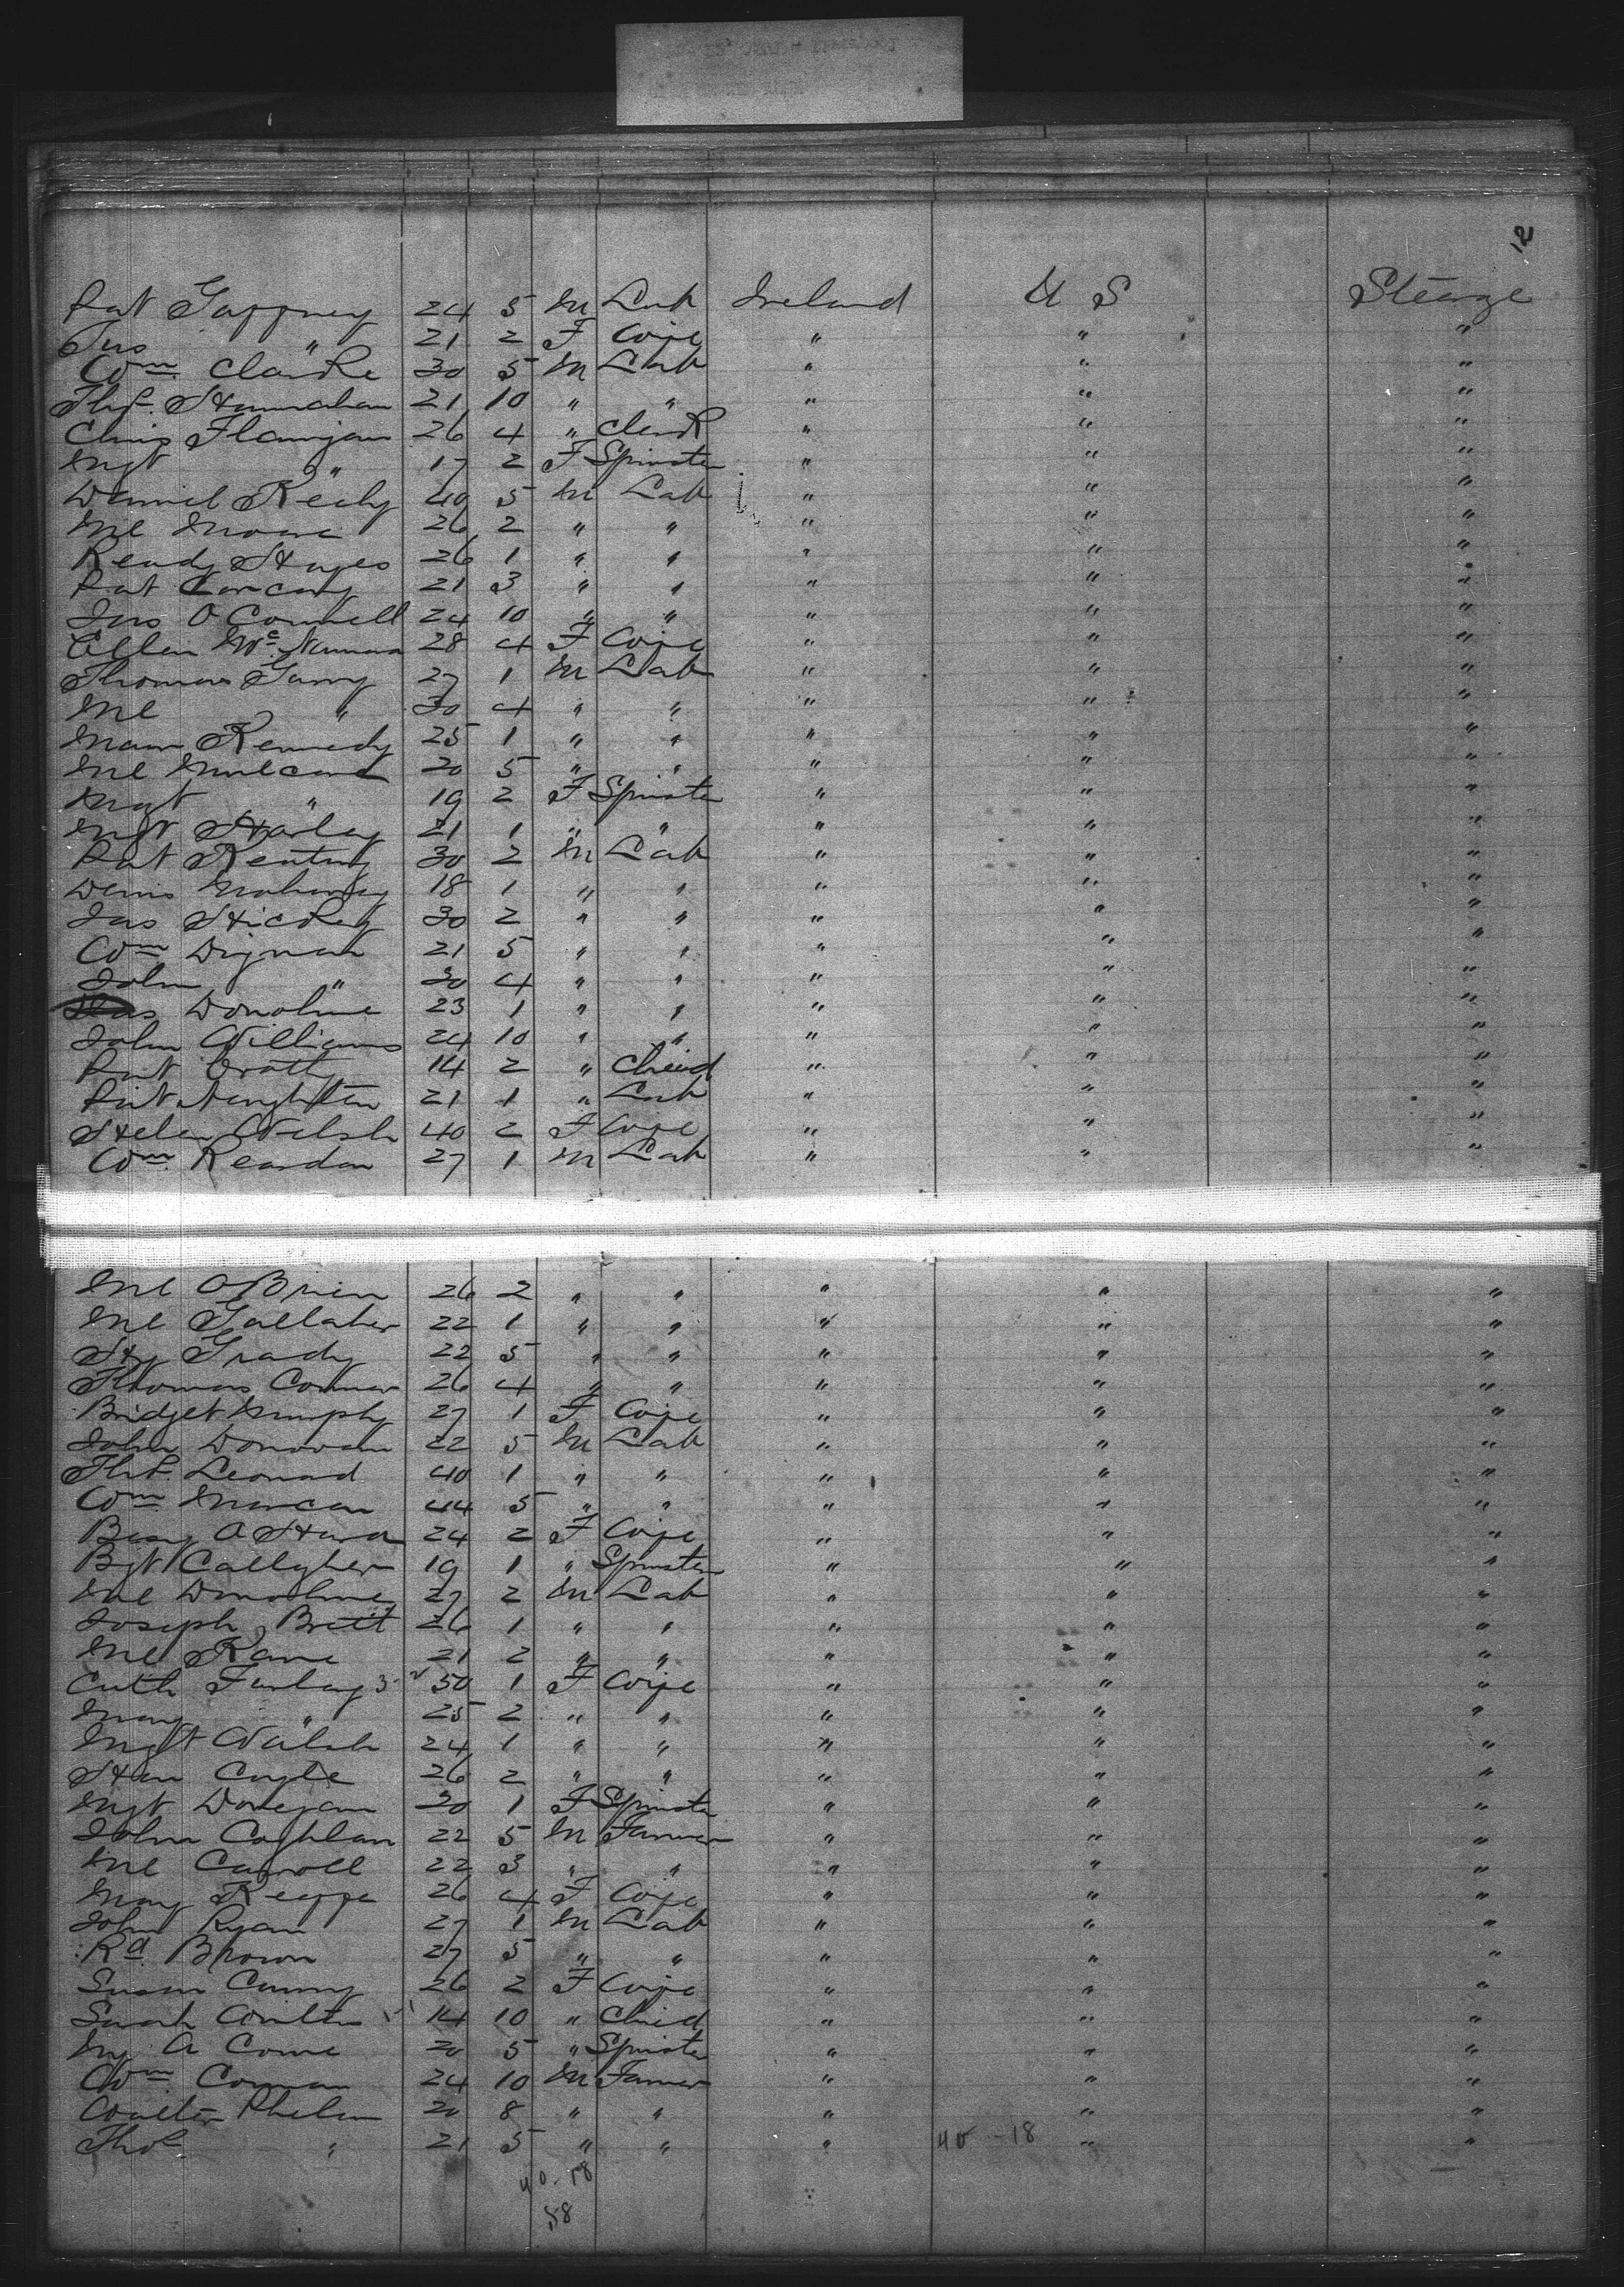 12
Pat Gaffney 24 5 M Lab Ireland U S Steage
Jas " 21 2 F Wife " " "
Wm Clarke 30 5 M Lab " " "
Ths. Hannrahan 21 10 " " " " "
Chris Flanigan 26 4 " Clerk " " "
Mgt " 17 2 F Spinster " " "
Daniel Kealy 40 5 M Lab " " "
Ml 26 2 " " " " "
Ready Hayes 26 1 " " " " "
Pat Corcory 21 3 " " " " "
Jas O Connell 24 10 " " " " "
Ellen McNamara 28 4 F Wife " " "
Thomas 27 1 M Lab " " "
Ml " 30 4 " " " " "
Kennedy 25 1 " " " " "
Ml 20 5 " " " " "
Mgt " 19 2 F Spinster " " "
Mgt Harley 21 1 " " " " "
Pat Keating 30 2 M Lab " " "
Denis Mahoney 18 1 " " " " "
Jas Hickey 30 2 " " " " "
Wm Dignan 21 5 " " " " "
John " 30 4 " " " " "
Donohue 23 1 " " " " "
John Williams 24 10 " " " " "
Pat 14 2 " Child " " "
Pat Naughton 21 1 " Lab " " "
Helen Welsh 40 2 F Wife " " "
Wm Reardon 27 1 M Lab " " "
Ml OBrien 26 2 " " " " "
Ml Gallaher 22 1 " " " " "
Hy Grady 22 5 " " " " "
Thomas Connor 26 4 " " " " "
Bridget Murphy 27 1 F Wife " " "
John Donovan 22 5 M Lab " " "
Ths. Leonard 40 1 " " " " "
Wm 44 5 " " " " "
O Hara 24 2 F Wife " " "
Bgt Callagher 19 1 " Spinster " " "
Ml Donohue 27 2 M Lab " " "
Joseph Brett 26 1 " " " " "
Ml Kane 21 2 " " " " "
Cath Farley 50 1 F Wife " " "
Mary " 25 2 " " " " "
Mgt Walsh 24 1 " " " " "
Han Coyle 26 2 " " " " "
Mgt Donegan 20 1 F Spinster " " "
John Coghlan 22 5 M Farmer " " "
Ml Carroll 22 3 " " " " "
Mary Keappe 26 4 F Wife " " "
John Ryan 27 1 M Lab " " "
Rd Brown 27 5 " " " " "
Susan Cunny 26 2 F Wife " " "
Sarah 14 10 " Child " " "
My A 20 5 " Spinster " " "
Wm Corman 24 10 M Farmer " " "
Walter Phelan 20 8 " " " " "
Thos " 21 5 " " " 40 - 18 " "
40 - 18
58